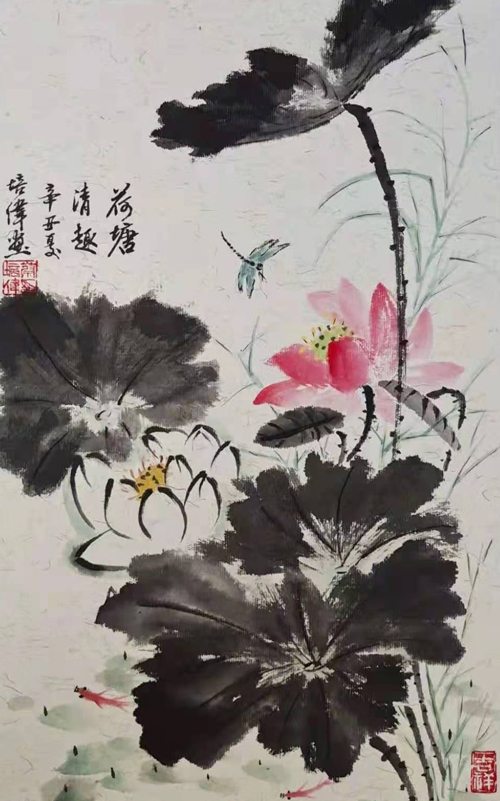 荷塘
清趣
辛丑夏
培偉
吉祥